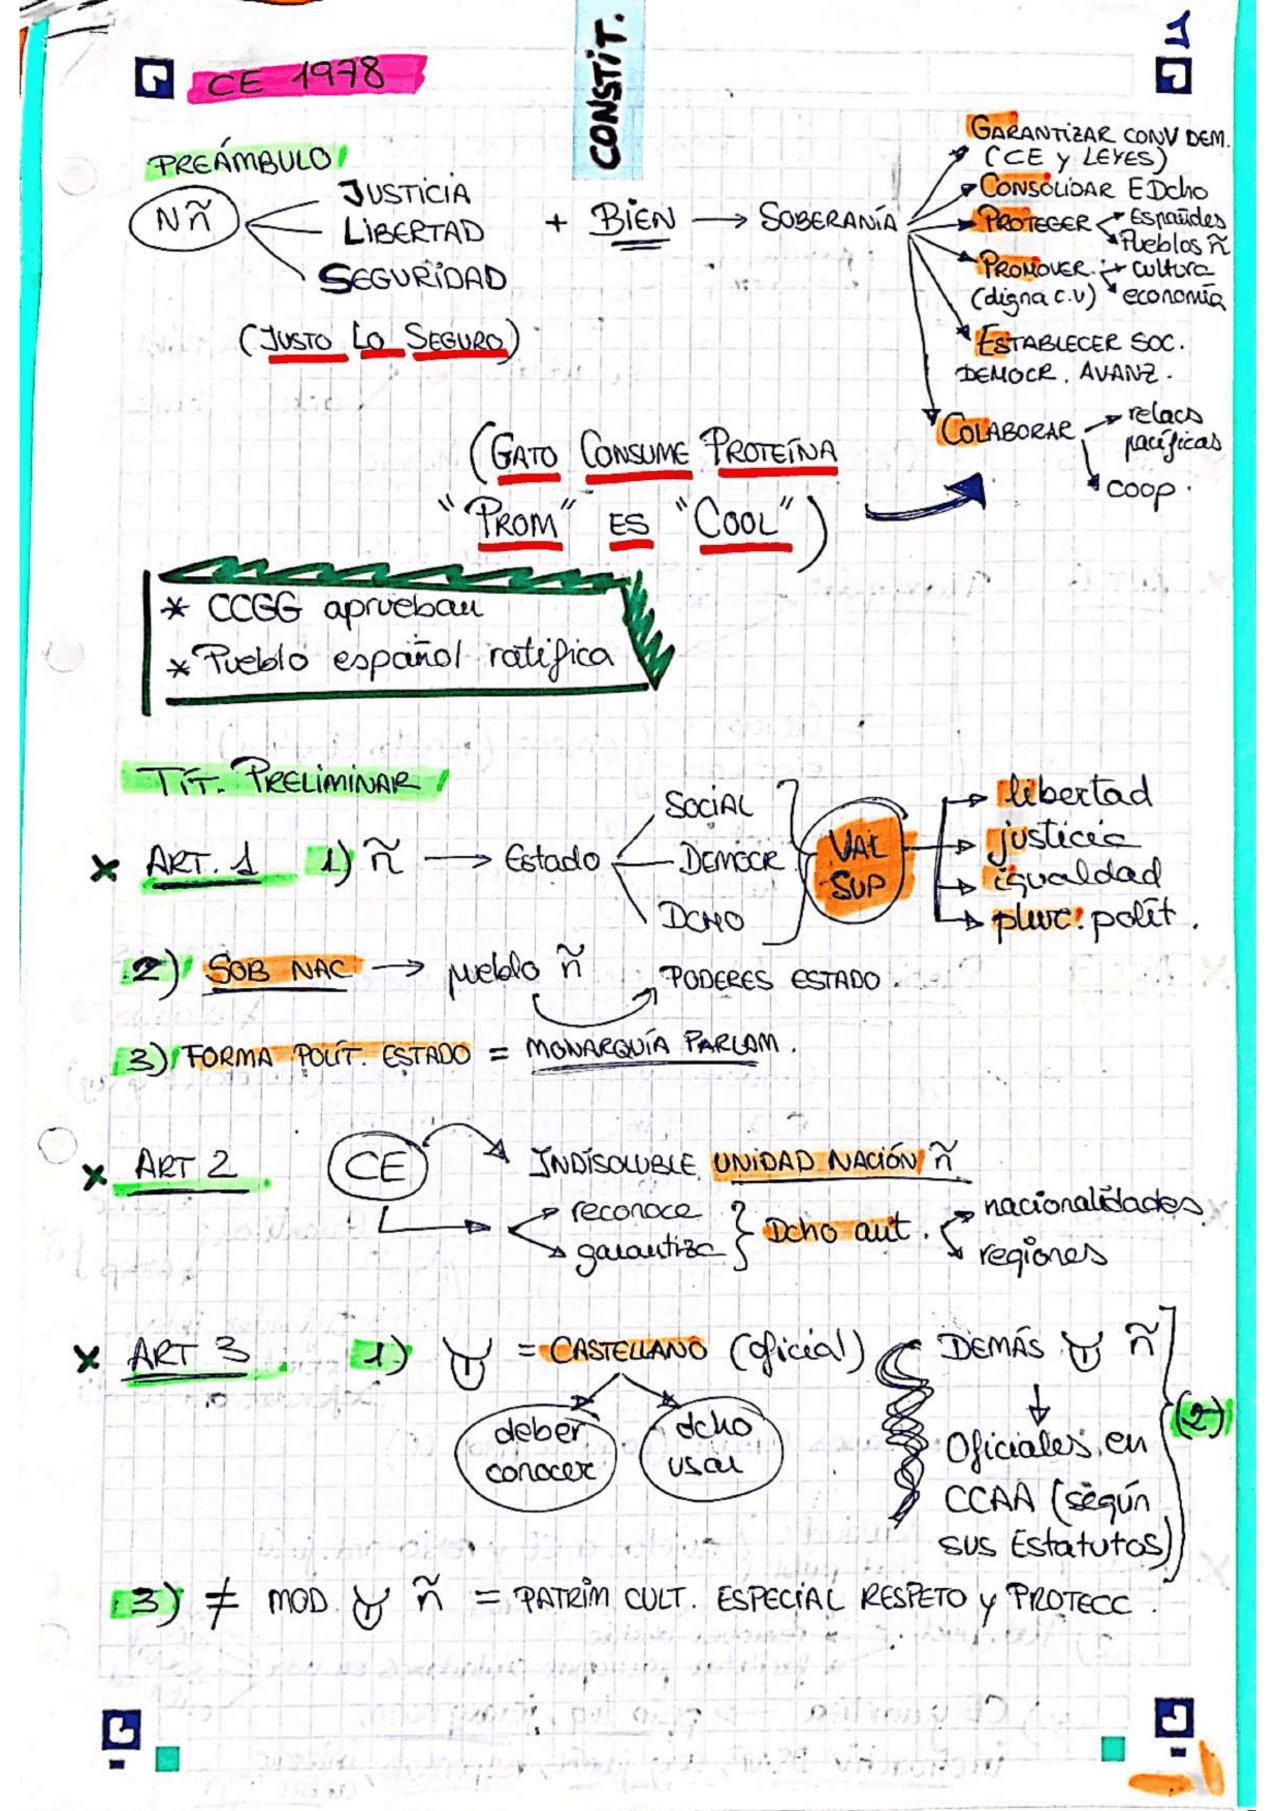 CONSTIT.
1
CE 1978
PREÁMBULO
Nñ
JUSTICIA
LIBERTAD
SEGURIDAD
+ BIEN → SOBERANÍA
(JUSTO LO SEGURO)
GARANTIZAR CONV DEM.
(CE y LEYES)
CONSOLIDAR EDcho
PROTEGER
Españoles
Pueblos ñ
PROMOVER
(digna c.v)
cultura
economía
ESTABLECER SOC.
DEMOCR. AVANZ.
COLABORAR
relacs
pacíficas
coop.
(GATO CONSUME PROTEÍNA
"PROM" ES "COOL")
* CCGG aprueban
* Pueblo español ratifica
TÍT. PRELIMINAR
x ART. 1 1) ñ → Estado
SOCIAL
DEMOCR
DCHO
VAL
SUP
libertad
justicia
igualdad
plur. polít.
2) SOB NAC → pueblo ñ PODERES ESTADO.
3) FORMA POLIT. ESTADO = MONARQUÍA PARLAM.
x ART 2 CE INDISOLUBLE UNIDAD NACIÓN ñ
reconoce
garantiza
} Dcho aut.
nacionalidades
regiones
x ART 3 1) = CASTELLANO (oficial)
deber
conocer
dcho
usar
DEMÁS ñ
↓
Oficiales en
CCAA (según
sus Estatutos)
(2)
3) ≠ MOD ñ = PATRIM CULT. ESPECIAL RESPETO y PROTECC.